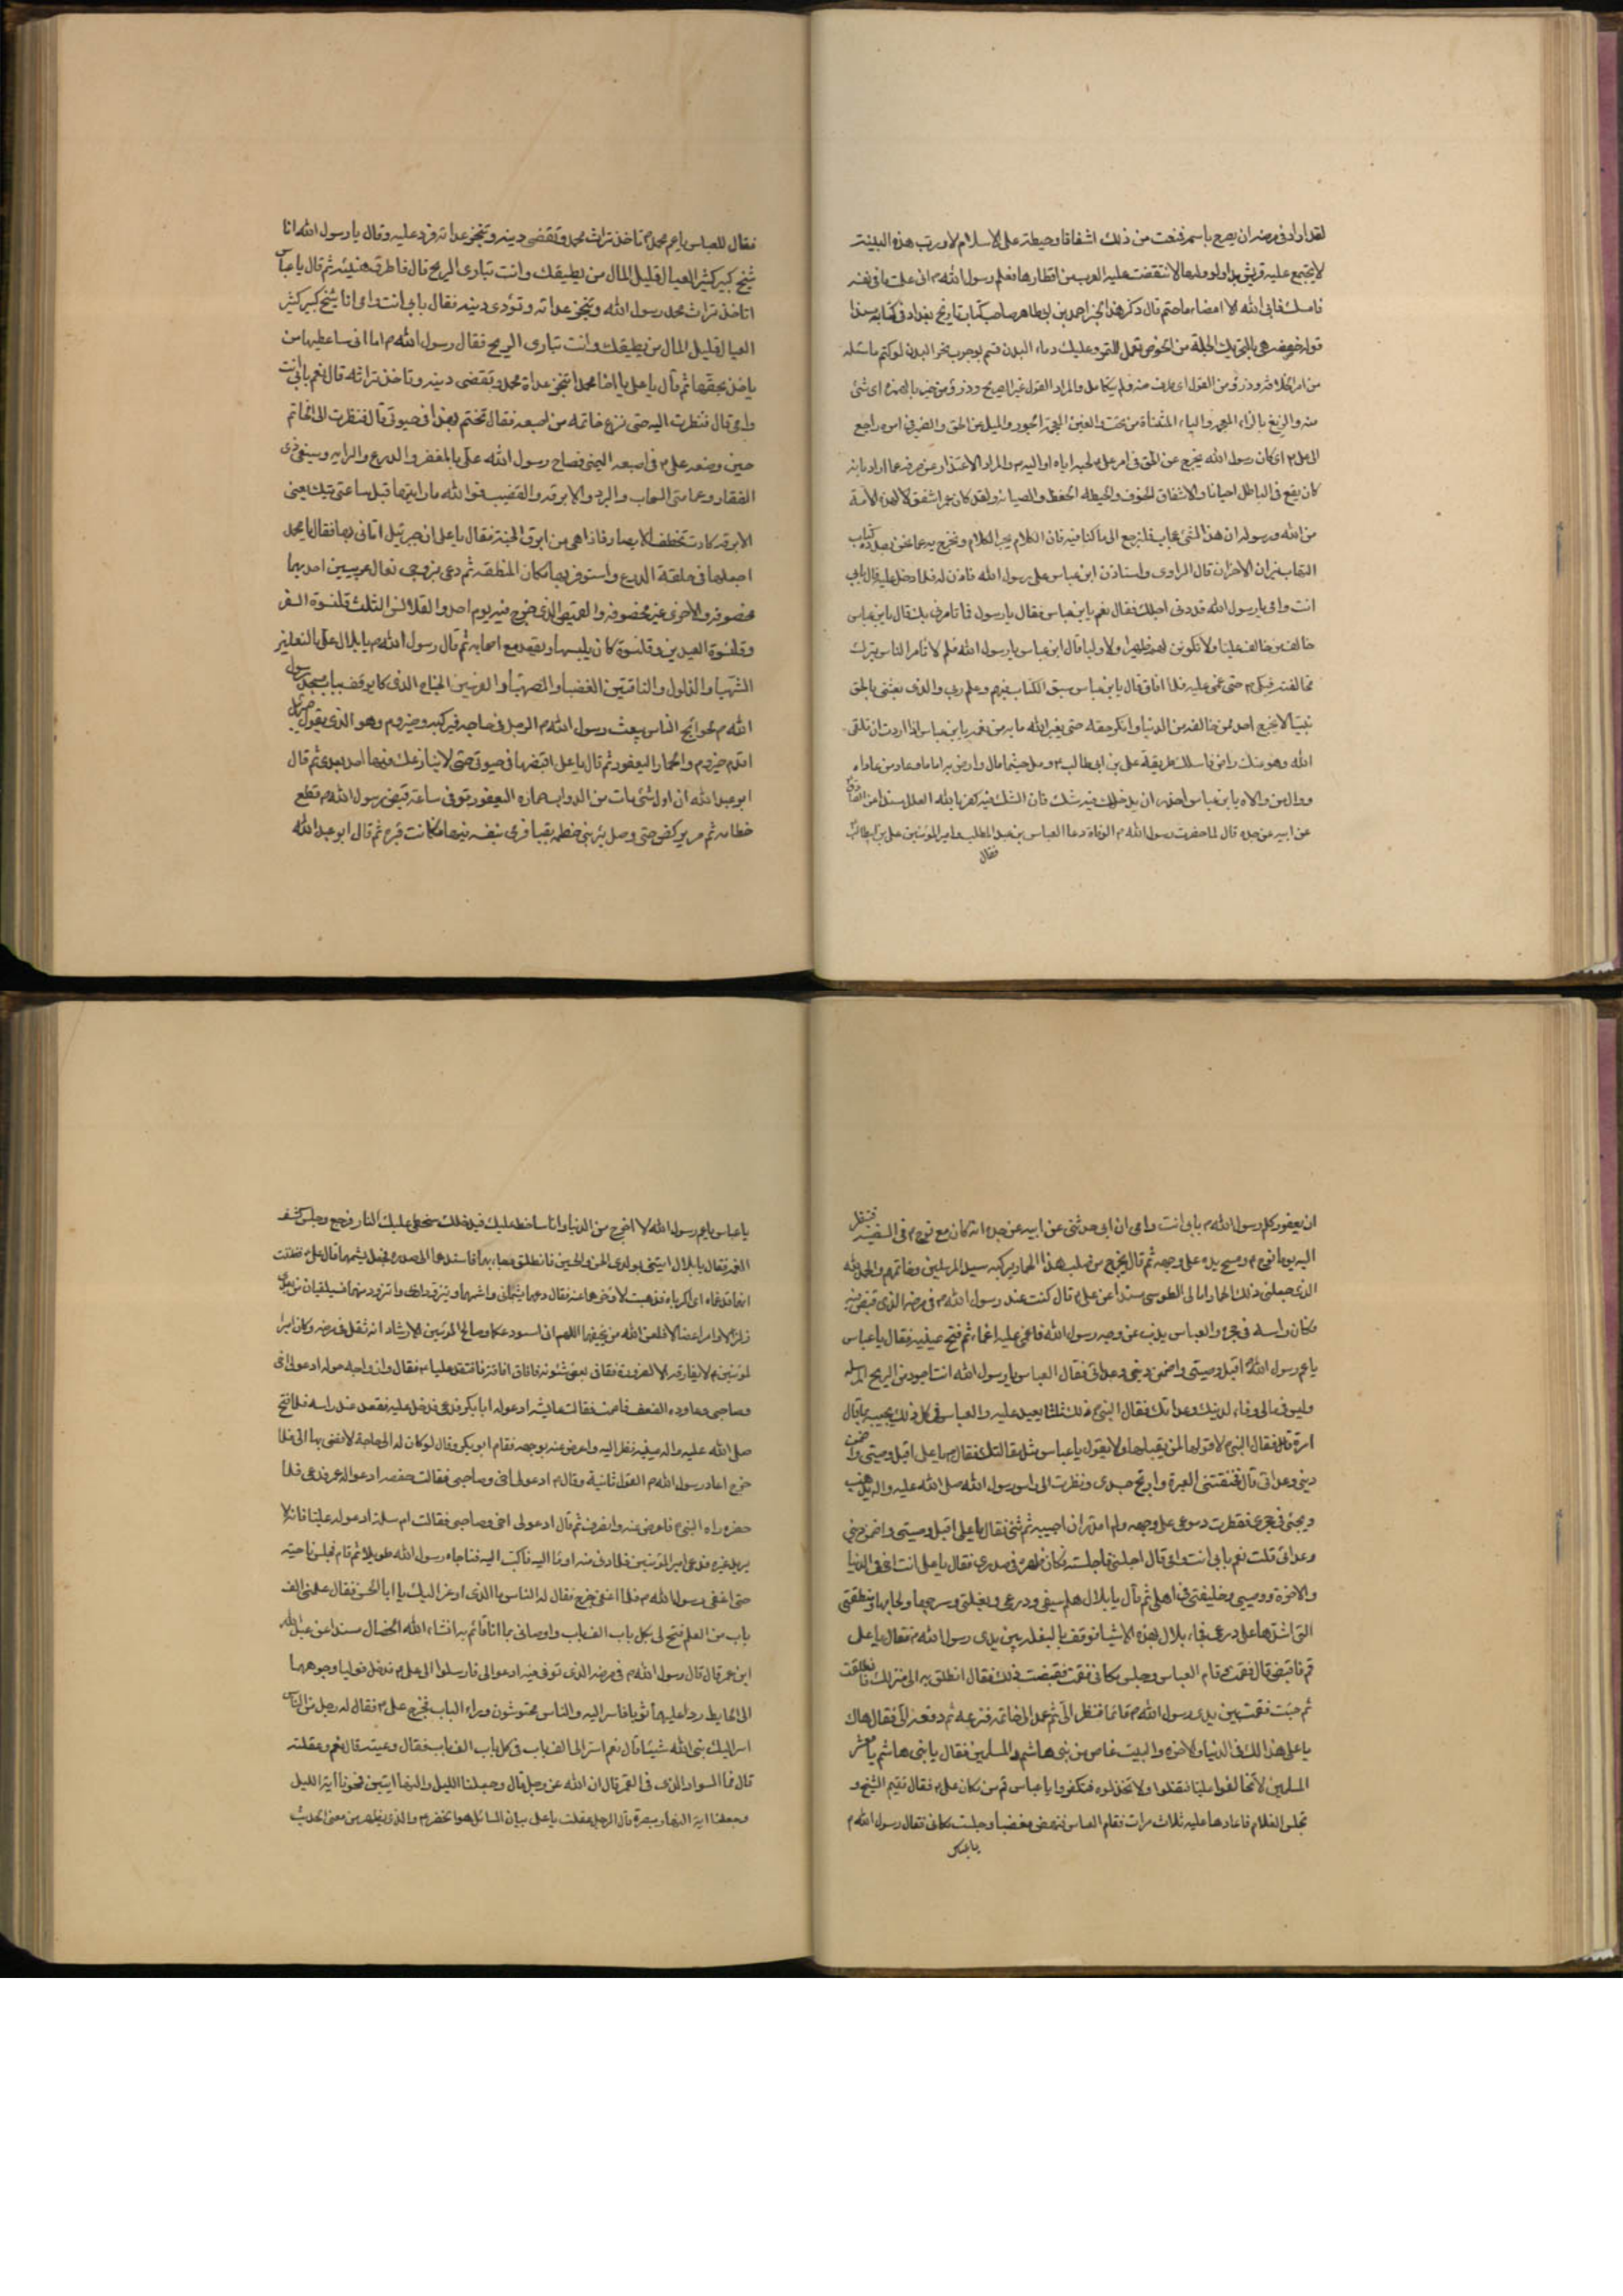 لقد اراد فى مرضه ان يصرح باسمه فمنعت من ذلك اشفاقا وحيطة على الاسلام لا ورب هذه البنية
لا يجتمع عليه قريش ابدا ولو وليها لانتقضت عليه العرب من اقطارها فعلم رسول الله ص انى علمت ما فى نفسه
فامسك فابى الله الا امضاء ما حتم قال ذكر هذا الخبر احمد بن ابى طاهر صاحب كتاب تاريخ بغداد فى كتابه مسندا
قوله خصفه هى بالتحريك الجلة من الخوص تعمل للتمر وعليك دماء البدن قسم بوجوب نحر البدن لو كتم ما سئله
من امر الخلافة وذرو من القول اى طرف منه ولم يتكامل والمراد القول غير الصريح
منه والزيغ بالزاء المعجمة والياء المثناة من تحت والغين المعجمة الجور والميل عن الحق والضمير فى امره راجع
الى على ع اى كان رسول الله يخرج عن الحق فى امر على لحبه اياه او اليه ص والمراد الاعتذار عن صرفه عما اراد بانه
كان يقع فى الباطل احيانا والاشفاق الخوف والحيطة الحفظ والصيانة ولقد كان عمر اشفق لهذه الامة
من الله ورسوله ان هذا لشئ عجاب فلنرجع الى ما كنا فيه فان الكلام يجر الكلام ونخرج به عما نحن بصدده كتاب
التهاب نيران الاحزان قال الراوى واستاذن ابن عباس على رسول الله فاذن له فلما دخل عليه قال بابى
انت وامى يا رسول الله قد دنى اجلك فقال نعم يا بن عباس فقال يا رسول الله فما تامرنى بك قال يا بن عباس
خالف من خالف عليا ولا تكونن لهم ظهيرا ولا وليا قال ابن عباس يا رسول الله فلم لا تامر الناس بترك
مخالفته فبكى ص حتى غمى عليه فلما افاق قال يا بن عباس سبق الكتاب فيهم وعلم ربى والذى بعثنى بالحق
نبيا لا يخرج احد ممن خالفه من الدنيا وانكر حقه حتى يغير الله ما به من نعمه يا بن عباس اذا اردت ان تلقى
الله وهو عنك راض فاسلك طريقة على بن ابى طالب ع ومل حيثما مال وارض به اماما وعاد من عاداه
ووال من والاه يا بن عباس احذر ان يدخلك فيه شك فان الشك فيه كفر بالله العلل مسندا عن الصادق
عن ابيه عن جده قال لما حضرت رسول الله ص الوفاة دعا العباس بن عبد المطلب وامير المؤمنين على بن ابيطالب
فقال
فقال للعباس يا عم محمد ص تاخذ تراث محمد وتقضى دينه وتنجز عداته فرد عليه وقال يا رسول الله انا
شيخ كبير كثير العيال قليل المال من يطيقك وانت تبارى الريح قال فاطرق هنيئة ثم قال يا عباس
اتاخذ تراث محمد رسول الله وتنجز عداته وتؤدى دينه فقال بابى انت وامى انا شيخ كبير كثير
العيال قليل المال من يطيقك وانت تبارى الريح فقال رسول الله ص اما انى ساعطيها من
ياخذ بحقها ثم قال يا على يا اخا محمد اتنجز عداة محمد وتقضى دينه وتاخذ تراثه قال نعم بابى انت
وامى قال فنظرت اليه حتى نزع خاتمه من اصبعه فقال تختم بهذا فى حيوتى قال فنظرت الى الخاتم
حين وضعه على ع فى اصبعه اليمنى فصاح رسول الله على بالمغفر والدرع والراية وسيفى ذى
الفقار وعمامتى السحاب والبرد والابرقة والقضيب فوالله ما رايتها قبل ساعتى تيك يعنى
الابرقة كادت تخطف الابصار فاذا هى من ابرق الجنة فقال يا على ان جبرئيل اتانى بها فقال يا محمد
اجعلها فى حلقة الدرع واستوفر بها مكان المنطقة ثم دعى بزوجى نعال عربيين احديهما
مخصوفة والاخرى غير مخصوفة والقميص الذى خرج فيه يوم احد والقلانس الثلث قلنسوة السفر
وقلنسوة العيدين وقلنسوة كان يلبسها ويقعد مع اصحابه ثم قال رسول الله ص يا بلال على بالبغلتين
الشهباء والدلدل والناقتين الغضباء والصهباء والفرسين الجناح الذى كان يوقف بباب مسجد رسول
الله ص لحوائج الناس يبعث رسول الله ص الرجل فى حاجته فيركبه وحيزوم وهو الذى يقول جبرئيل
اقدم حيزوم والحمار اليعفور ثم قال يا على اقبضها فى حيوتى حتى لا ينازعك فيها احد بعدى ثم قال
ابو عبد الله ان اول شئ مات من الدواب حماره اليعفور توفى ساعة قبض رسول الله ص قطع
خطامه ثم مر يركض حتى وصل بئر بنى خطمه بقبا فرمى بنفسه فيها فكانت قبره ثم قال ابو عبد الله
ان يعفور كلم رسول الله ص بابى انت وامى ان ابى حدثنى عن ابيه عن جده انه كان مع نوح ع فى السفينة فنظر
اليه يوما نوح ع ومسح يده على وجهه ثم قال يخرج من صلب هذا الحمار حمار يركبه سيد المرسلين وخاتمهم والحمد لله
الذى جعلنى ذلك الحمار امالى الطوسى مسندا عن على ع قال كنت عند رسول الله ص فى مرضه الذى قبض فيه
فكان راسه فى حجرى والعباس يذب عن وجه رسول الله فاغمى عليه اغماء ثم فتح عينيه فقال يا عباس
يا عم رسول الله اقبل وصيتى واضمن دينى وعداتى فقال العباس يا رسول الله انت اجود من الريح المرسلة
وليس فى مالى وفاء لدينك وعداتك فقال النبى ص ذلك ثلثا يعيد عليه والعباس فى كل ذلك يجيب بما قال
اول مرة فقال النبى ص لاقولها لمن يقبلها ولا يقول يا عباس مثل مقالتك فقال ص يا على اقبل وصيتى واضمن
دينى وعداتى قال فخنقتنى العبرة وارتج جسدى ونظرت الى راس رسول الله صلى الله عليه واله يذهب
ويجئ فى حجرى فقطرت دموعى على وجهه ولم اقدر ان اجيبه ثم ثنى فقال يا على اقبل وصيتى واضمن دينى
وعداتى قلت نعم بابى انت وامى قال اجلسنى فاجلسته فكان ظهره فى صدرى فقال يا على انت اخى فى الدنيا
والاخرة ووصيى وخليفتى فى اهلى ثم قال يا بلال هلم سيفى ودرعى وبغلتى وسرجها ولجامها ومنطقتى
التى اشدها على درعى فجاء بلال بهذه الاشياء فوقف بالبغلة بين يدى رسول الله ص فقال يا على
قم فاقبض قال فقمت وقام العباس وجلس مكانى فقمت فقبضت ذلك فقال انطلق به الى منزلك فانطلقت
ثم جئت فقمت بين يدى رسول الله ص قائما فنظر الى ثم عمد الى خاتمه فنزعه ثم دفعه الى فقال هاك
يا على هذا لك فى الدنيا والاخرة والبيت غاص من بنى هاشم والمسلمين فقال يا بنى هاشم يا معشر
المسلمين لا تخالفوا عليا فتضلوا ولا تحسدوه فتكفروا يا عباس قم من مكان على ع فقال تقيم الشيخ و
تجلس الغلام فاعادها عليه ثلاث مرات فقام العباس فنهض مغضبا وجلست مكانى فقال رسول الله ص
يا عباس
يا عباس يا عم رسول الله لا اخرج من الدنيا وانا ساخط عليك فيدخلك سخطى عليك النار فرجع وجلس
فقال يا بلال ايتنى بولدى الحسن والحسين فانطلق فجاء بهما فاسندهما الى صدره فجعل يشمهما قال على ع فظننت
انهما قد غماه اى اكرباه فذهبت لاؤخرهما عنه فقال دعهما يشمانى واشمهما ويتزودا منى واتزود منهما فسيلقيان من بعدى
زلزالا وامرا عضالا فلعن الله من يخيفهما اللهم انى استودعكهما وصالح المؤمنين الارشاد انه ثقل فى مرضه وكان امير
المؤمنين ع لا يفارقه الا لضرورة فقام فى بعض شئونه فافاق افاقة فافتقد عليا ع فقال وازواجه حوله ادعوا لى اخى
وصاحبى وعاوده الضعف فاصمت فقالت عايشة ادعوا له ابا بكر فدعى فدخل عليه فقعد عند راسه فلما فتح
صلى الله عليه واله عينيه نظر اليه واعرض عنه بوجهه فقام ابو بكر وقال لو كان له الى حاجة لافضى بها الى فلما
خرج اعاد رسول الله ص القول ثانية وقال ص ادعوا لى اخى وصاحبى فقالت حفصه ادعوا له عمر فدعى فلما
حضر وراه النبى ص فاعرض عنه وانصرف ثم قال ادعوا لى اخى وصاحبى فقالت ام سلمة ادعوا له عليا فانه لا
يريد غيره فدعى امير المؤمنين فلما دنى منه اومأ اليه فاكب اليه فناجاه رسول الله طويلا ثم قام فجلس ناحية
حتى اغفى رسول الله ص فلما اغفى خرج فقال له الناس ما الذى اوعز اليك يا ابا الحسن فقال علمنى الف
باب من العلم فتح لى بكل باب الف باب واوصانى بما انا قائم به انشاء الله الخصال مسندا عن عبد الله
ابن عمر قال قال رسول الله ص فى مرضه الذى توفى فيه ادعوا لى اخى فارسلوا الى على ع فدخل فوليا وجوههما
الى الحايط وردا عليهما ثوبا فاسر اليه والناس محتوشون وراء الباب فخرج على ع فقال له رجل من الناس
اسر اليك نبى الله شيئا قال نعم اسر الى الف باب فى كل باب الف باب فقال وعيته قال نعم وعقلته
قال فما السواد الذى فى القمر قال ان الله عز وجل قال وجعلنا الليل والنهار ايتين فمحونا اية الليل
وجعلنا اية النهار مبصرة قال الرجل عقلت يا على بيان